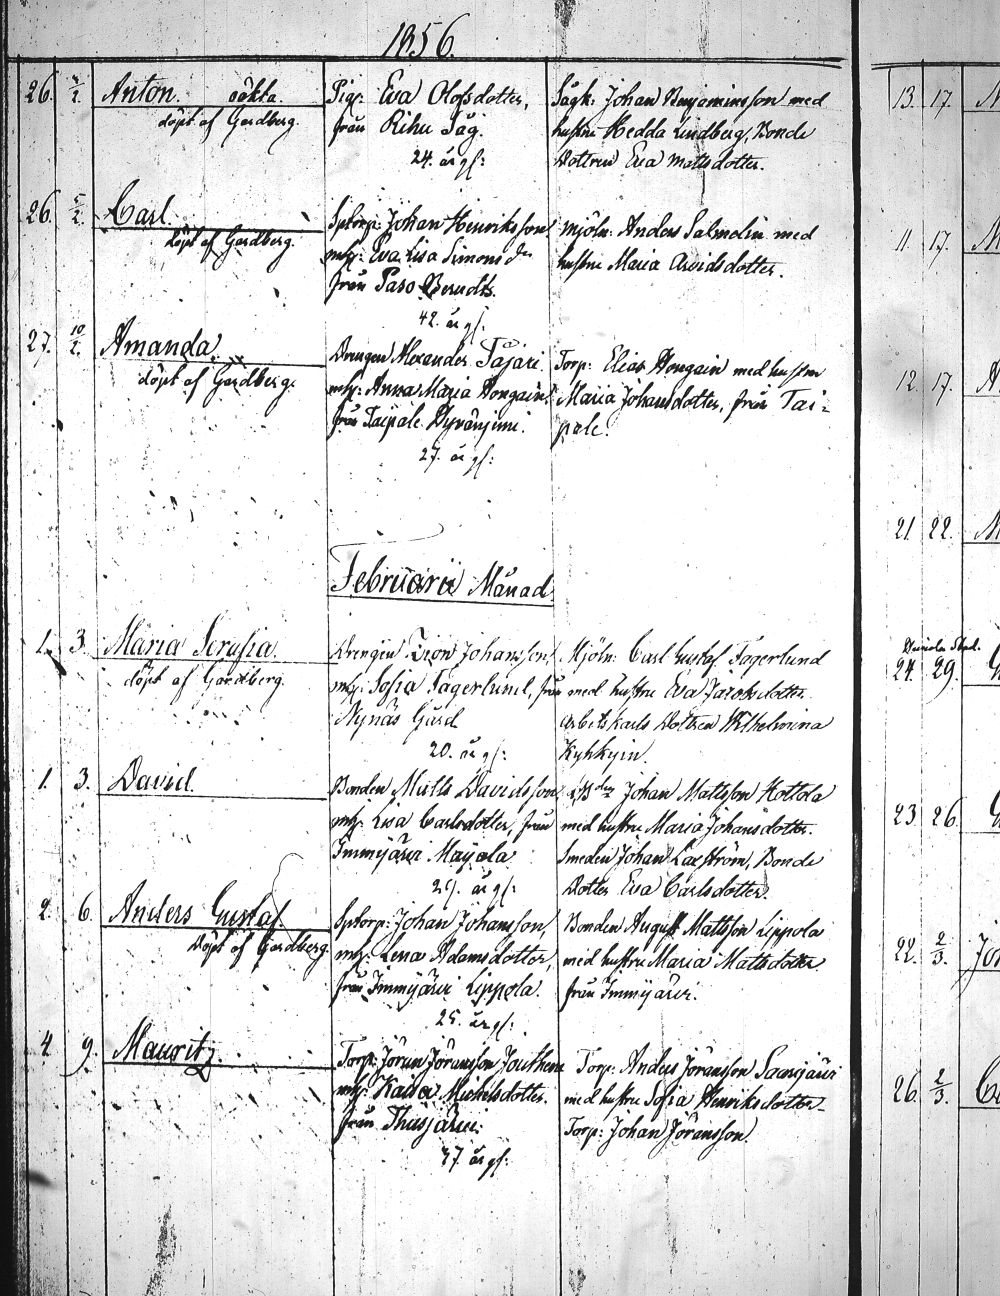 1856.
26. 2/2. Anton. oäkta.
döpt af Gardberg.
Pig: Eva Olofsdotter,
från Rihu Såg.
24. år gl:
Sågk: Johan Benjaminsson med
hustru Hedda Lindberg, Bonde
Dottren Eva Mattsdotter.
26. 5/2. Carl.
döpt af Gardberg.
Sptorp: Johan Henriksson
mhu: Eva Lisa Simons dr
från Paso Berndts.
42. år gl:
Mjöln: Anders Salmelin med
hustru Maria Arvidsdotter.
27. 10/2. Amanda.
döpt af Gardberg.
Drengen Alexander Tajari
mhu: Anna Maria Hongain
från Taipale
27. år gl:
Torp: Elias Hongain med hustru
Maria Johansdotter, från Tai-
pale.
Februarii Månad
1. 3. Maria Serafia.
döpt af Gardberg.
Drengen Johansson
mhu: Sofia Fagerlund, från
Nynäs Gård
20. år gl:
Mjöln: Carl Gustaf Fagerlund
med hustru Eva Jacobsdotter.
arbetskarls Dottren Wilhelmina
Kyhkyin.
1. 3. David.
Bonden Matts Davidsson
mhu: Lisa Carlsdotter, från
Immijärvi Mayola
29. år gl:
Bden Johan Mattsson Hottola
med hustru Maria Johansdotter.
Smeden Johan Laxström, Bonde
Dotter Eva Carlsdotter.
2. 6. Anders Gustaf.
Döpt af Gardberg.
Sptorp: Johan Johansson,
mhu: Lena Adamsdotter,
från Immijärvi Lippola.
25. år gl:
Bonden August Mattsson Lippola
med hustru Maria Mattsdotter
från Immijärvi.
4. 9. Mauritz
Torp: Jöran Jöransson Jouthen
mhu: Kaisa Michelsdotter.
från Thusjärvi.
37. år gl:
Torp: Anders Jöransson Saarijärvi
med hustru Sofia Henriksdotter
Torp: Johan Jöransson.
13. 17.
11. 17.
12. 17.
21. 22.
24. 29.
23. 26.
22. 2/3.
26. 2/3.